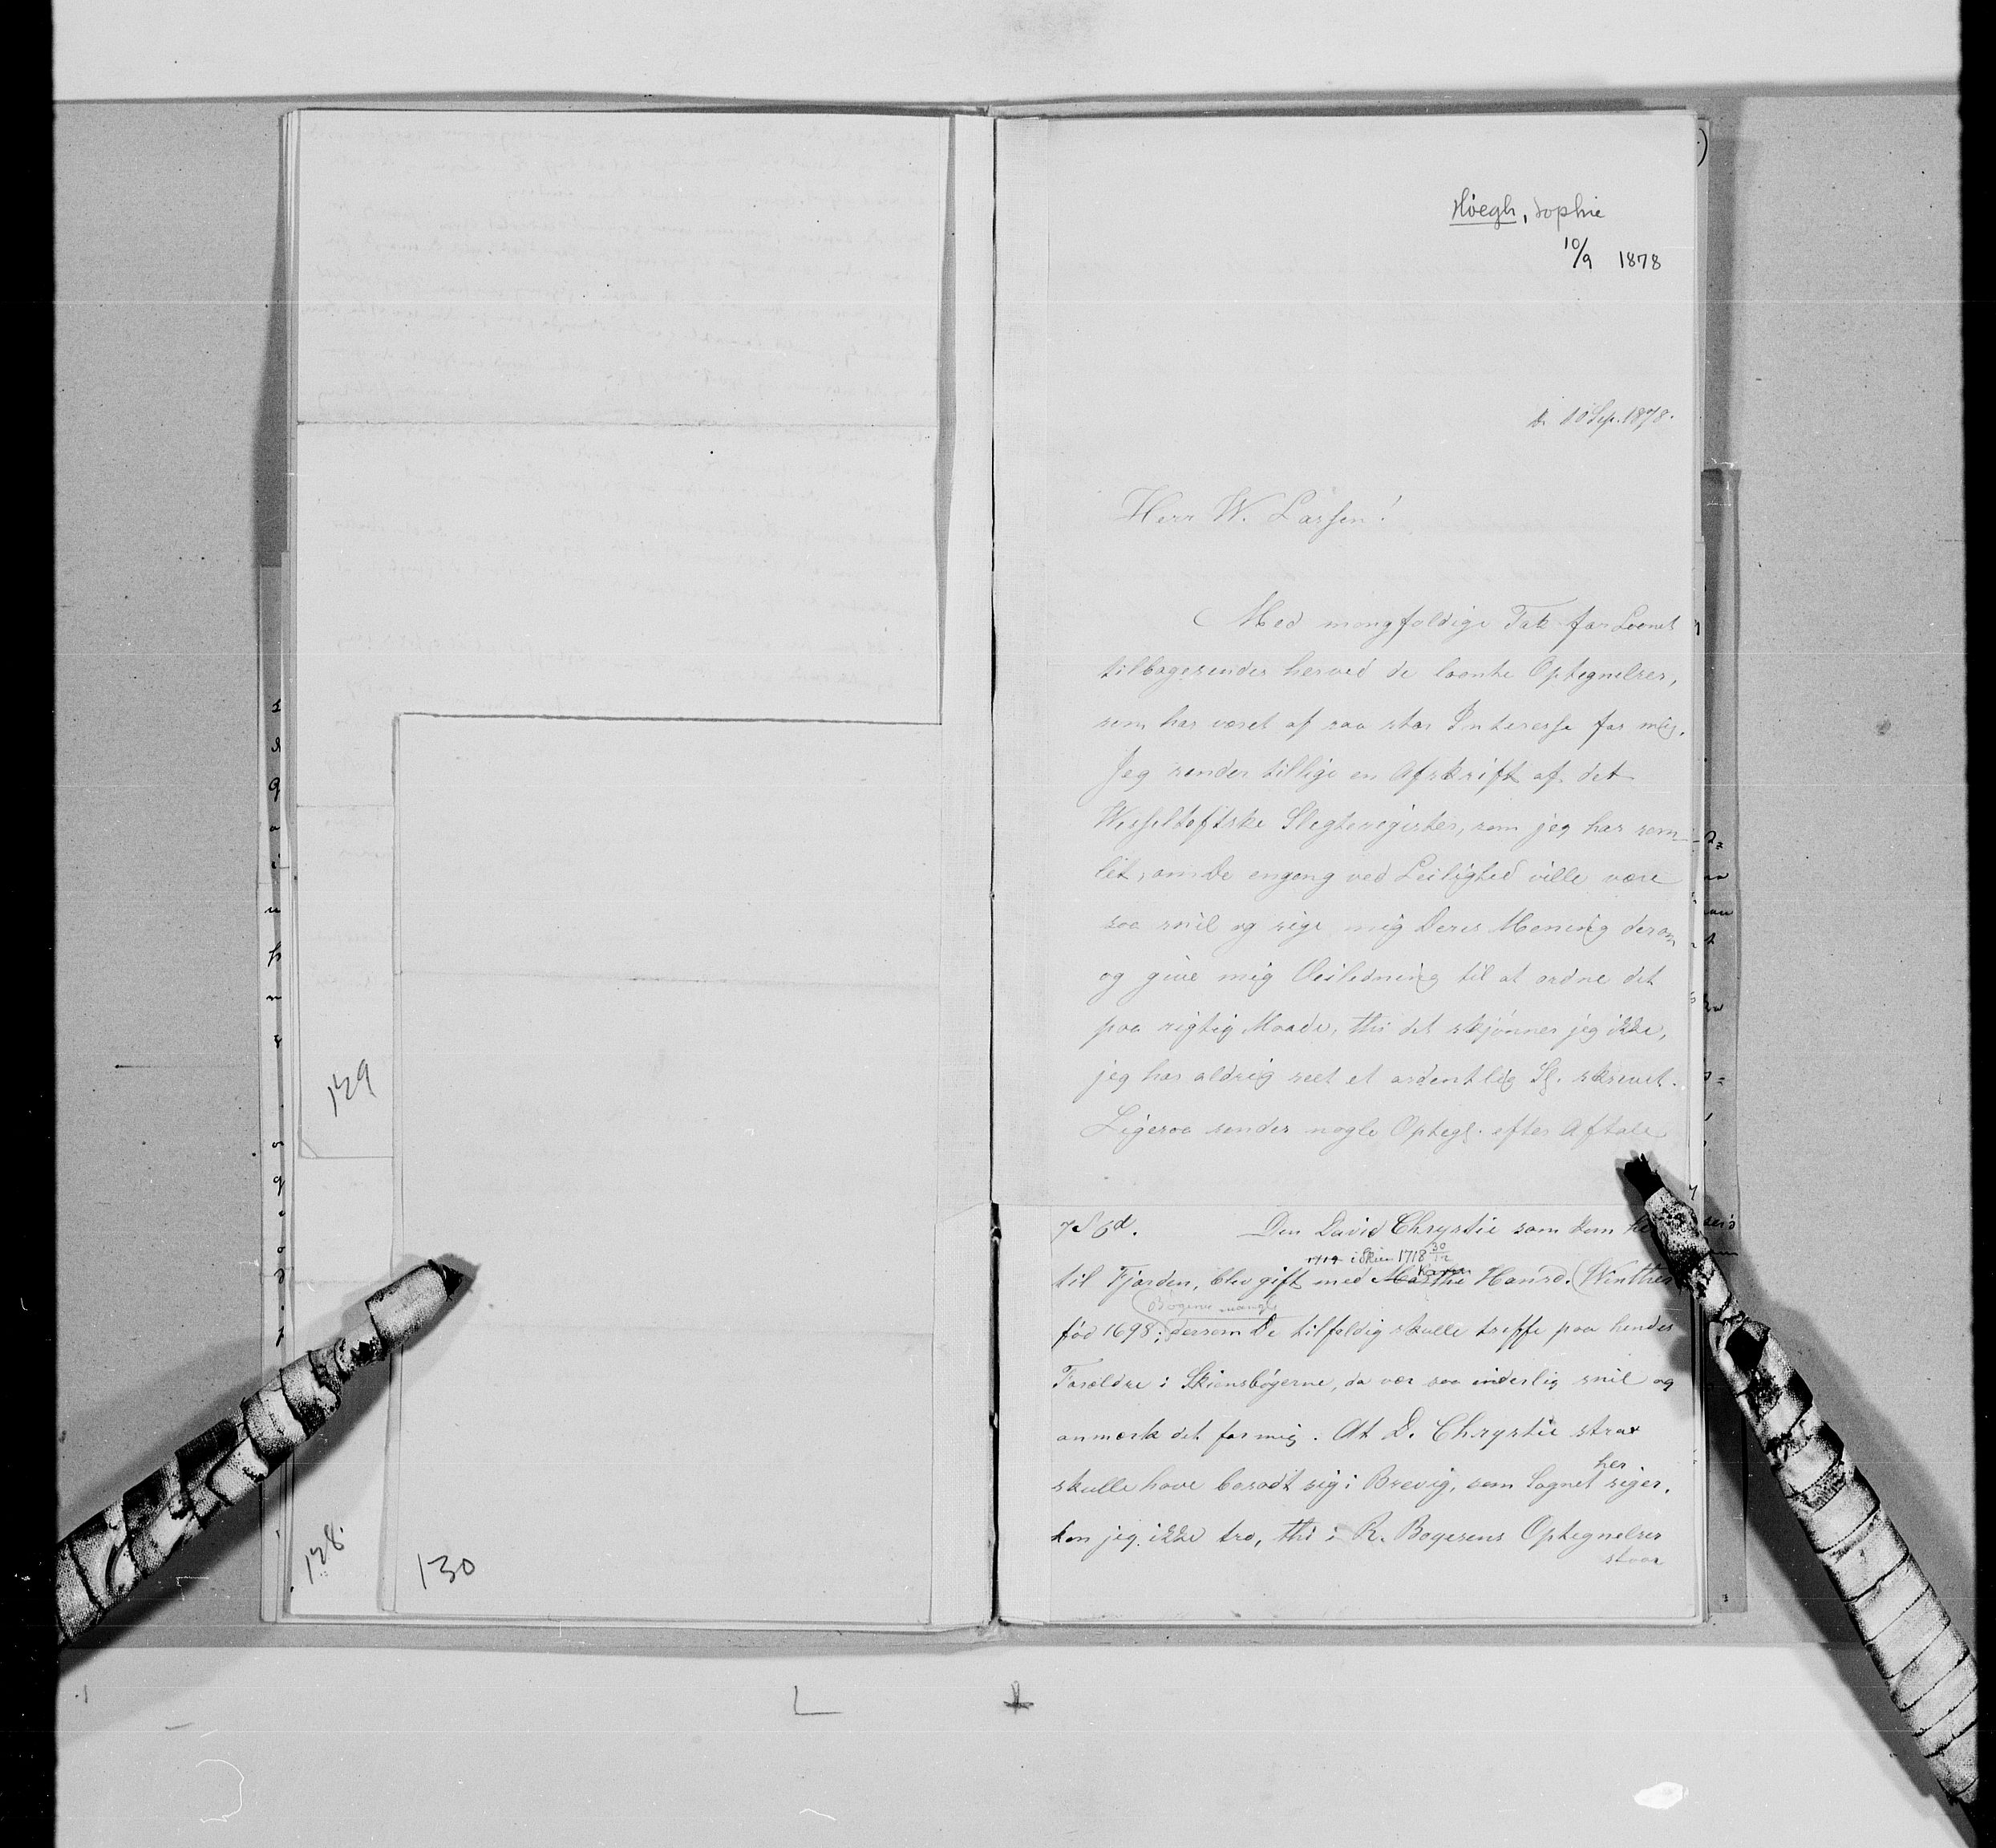 129
128.
130
Höegh, Sophie
10/9 1878
D. 10 Sep. 1878.
Herr W. Larsen!
Med mangfoldige Tak for Laanet
tilbagesendes herved de laante Optegnelser,
som har været af saa stor Interesse for mig.
Jeg sender tillige en Afskrift af det
Wesseltoftske Slegtsregister, som jeg har sam-
let, om De engang ved Leilighed ville være
saa snil og sige mig Deres Mening derom
og give mig Veiledning til at ordne det
paa rigtig Maade, thi det skjønner jeg ikke,
jeg har aldrig seet et ordentlig Sl. skrevet.
Ligesaa sendes nogle Optegl. efter Aftale
7 S 6d. Den David Chrystie som kom
1719 i Skien 1718 30/12
Karen
til Fjorden, blev gift med Marthe Hansd. (Winther
(Bøgerne mangle
fød 1698; dersom De tilfældig skulle treffe paa hendes
Forældre i Skiensbøgerne, da vær saa inderlig snil og
anmærk det for mig. At D. Chrystie strax
her
skulle have bosadt sig i Brevig, som Sagnet siger,
kan jeg ikke tro, thi i R. Boyesens Optegnelser
staar